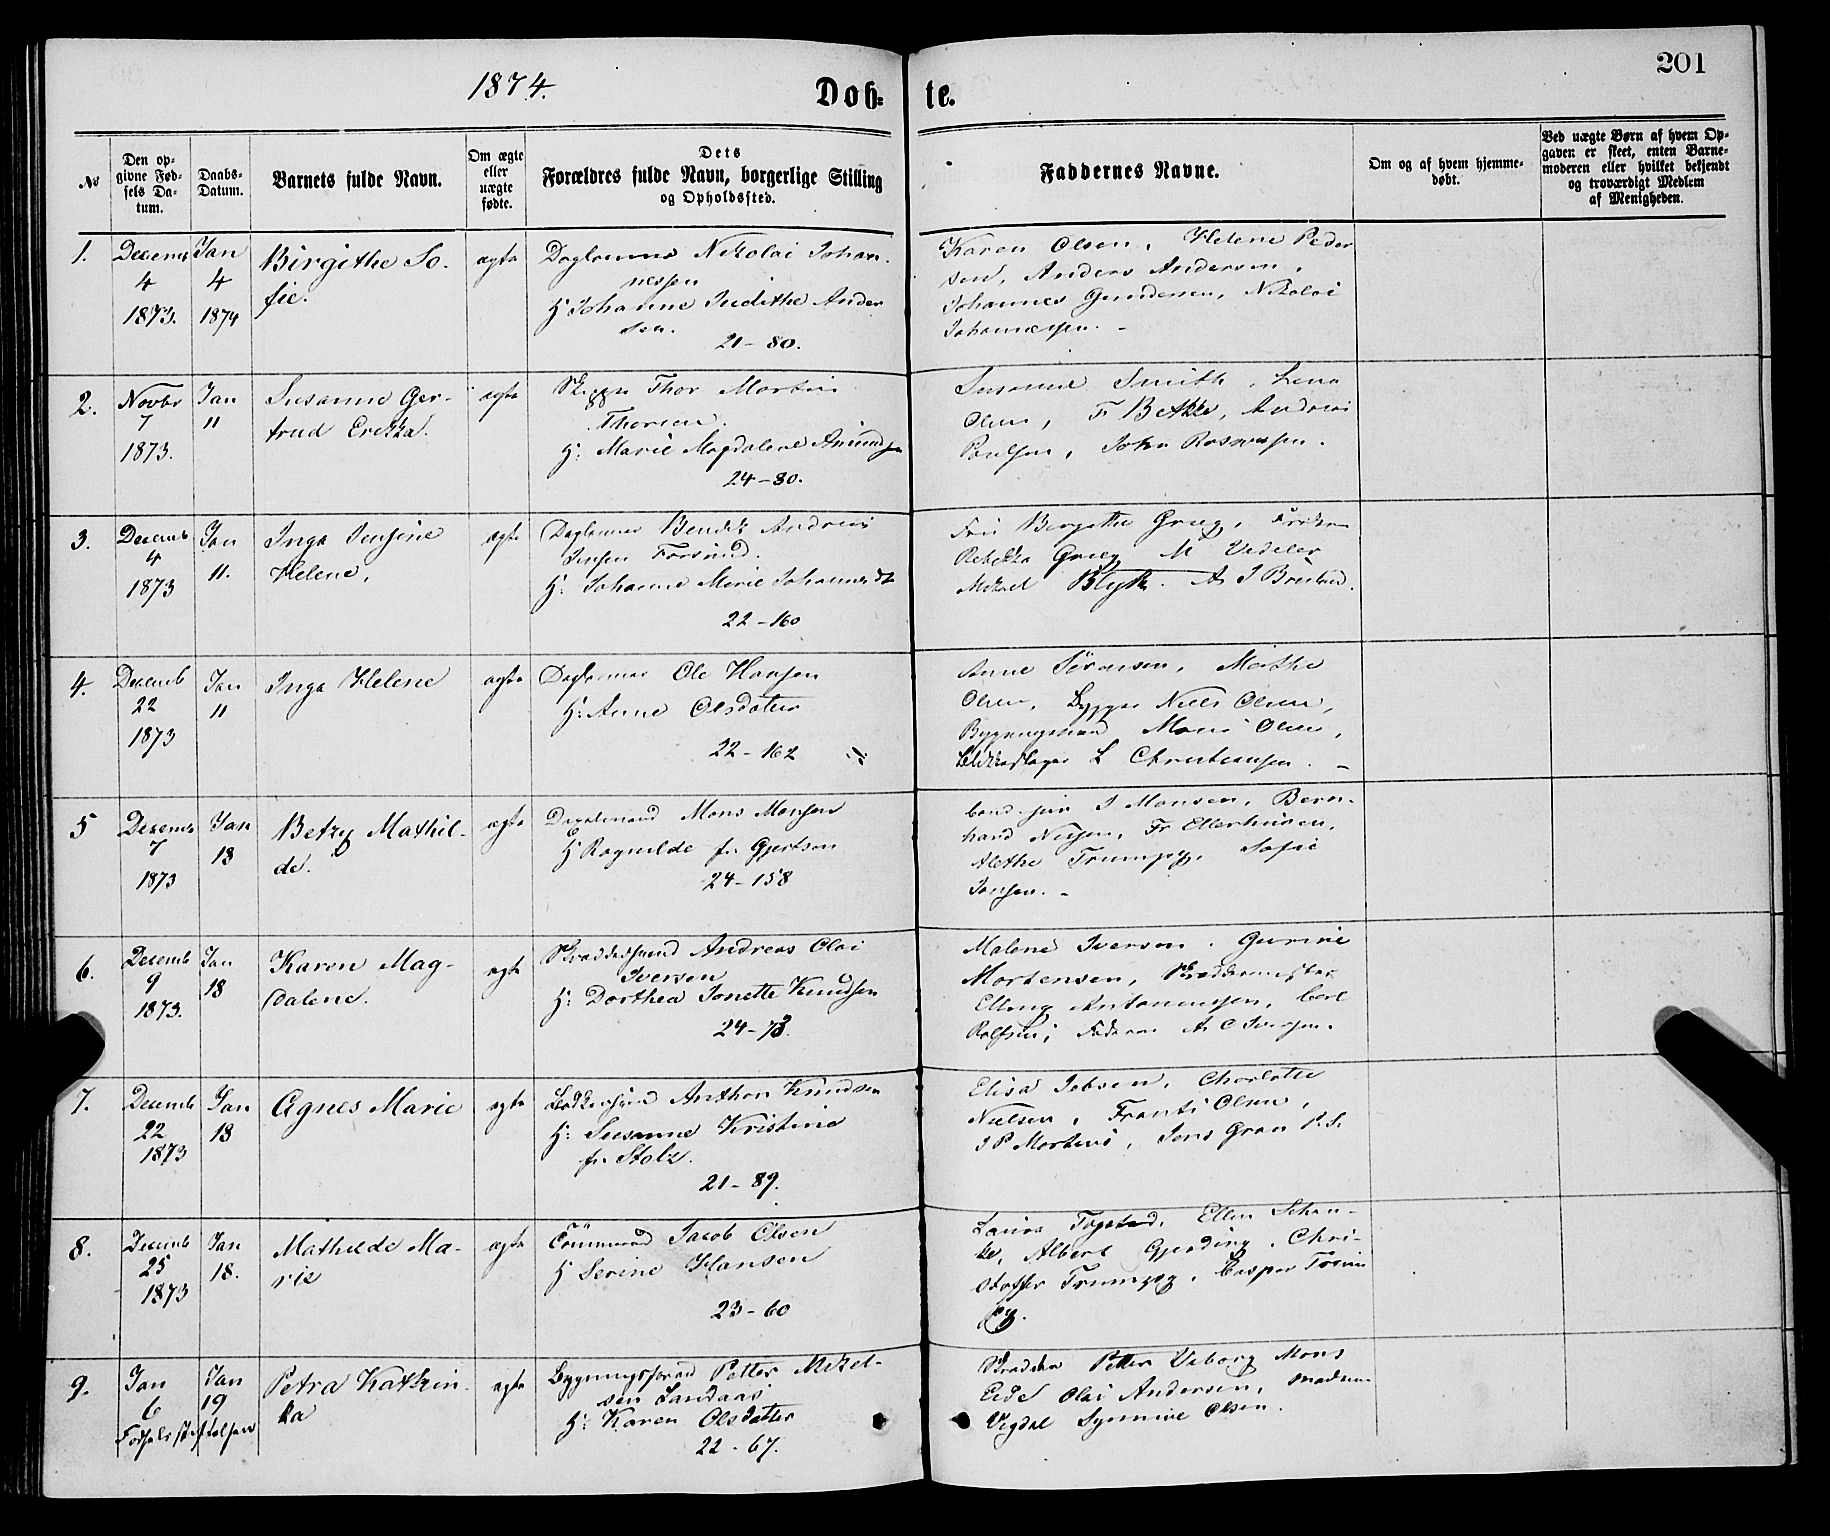 201
1874.
Døb=
te.
No
Den op-
givne Fød-
sels Da-
tum.
Daabs-
Datum.
Barnets fulde Navn.
Om ægte
eller
uægte
fødte.
Dets
Forældres fulde Navn, borgerlige Stilling
og Opholdssted.
Faddernes Navne.
Om og af hvem hjemme-
døbt.
Ved uægte Børn af hvem Op-
gaven er skeet, enten Barne-
moderen eller hvilket bekjendt
og troværdigt Medlem
af Menigheden.
1.
Decemb
4
1873.
Jan
4
1874
Birgithe So-
fie.
ægte
Nikolai Johan-
nessen
H Johanne Judithe Ander
sen.
21-80.
Karen Olsen, Helene Peder
sen, Anders Andersen,
Johannes Gundersen, Nikolai
Johannessen. -
2.
Novbr
7
1873.
Jan
11
Susanne Ger-
trud Erikka.
ægte
Thor Martin
Thorsen.
H: Marie Magdalene
24-80.
Susanne Smith, Lena
Olsen, Fr Andreas
Paulsen, John
3.
Decemb
4
1873
Jan
11.
Inga Jensine
Helene,
ægte
Bendik Andreas
Jensen Forsund.
H: Johanne Marie
22-160
Grieg,
Rebekka Grieg M Vedeler
Mikael Blytt. A J
4.
Decemb
22
1873
Jan
11
Inga Helene
ægte
Ole Hansen
H: Anne Olsdatter
22-162
Anne Sørensen, Marthe
Olsen, Niels Olsen,
Mons Olsen,
L Christiansen. -
5
Decemb
7
1873
Jan
18
Betzy Mathil-
de.
ægte
Mons Monsen
H Ragnilde f. Gjertsen
24-158
J Monsen, Bern-
hard Fr Ellerhusen,
Alethe Trumpy, Sofie
Jansen. -
6.
Decemb
9
1873.
Jan
18
Karen Mag-
dalene.
ægte
Skraddersvend Andreas Olai
Iversen
H: Dorthea Jonette Knudsen
24-73.
Malene Iversen. Gurine
Mortensen, Skræddermester
Elling Antonussen, Carl
Faderen A O Iversen.
7.
Decemb
22
1873
Jan
18
Agnes Marie
ægte
Anthon Knudsen
H: Susanne Kristine
f. Stolz.
21-89.
Elisa Jebsen, Charlotte
Nielsen, Frants Olsen,
J P Martens, Jens Gran P.S.
8.
Decemb
25
1873
Jan
18.
Mathilde Ma-
rie
ægte
Jacob Olsen
H Serine Hansen
23-60
Laura Ellen Schan-
ke, Albert Gjerding, Chri-
stoffer Trumpy, Casper Trum
py.
9.
Jan
6
Jan
19
Petra Kathin-
ka
ægte
Petter Mikel-
sen Landaas
H: Karen Olsdatter
22-67.
Petter Viborg Mons
Eide Olai Andersen,
Vigdal Synnive Olsen.